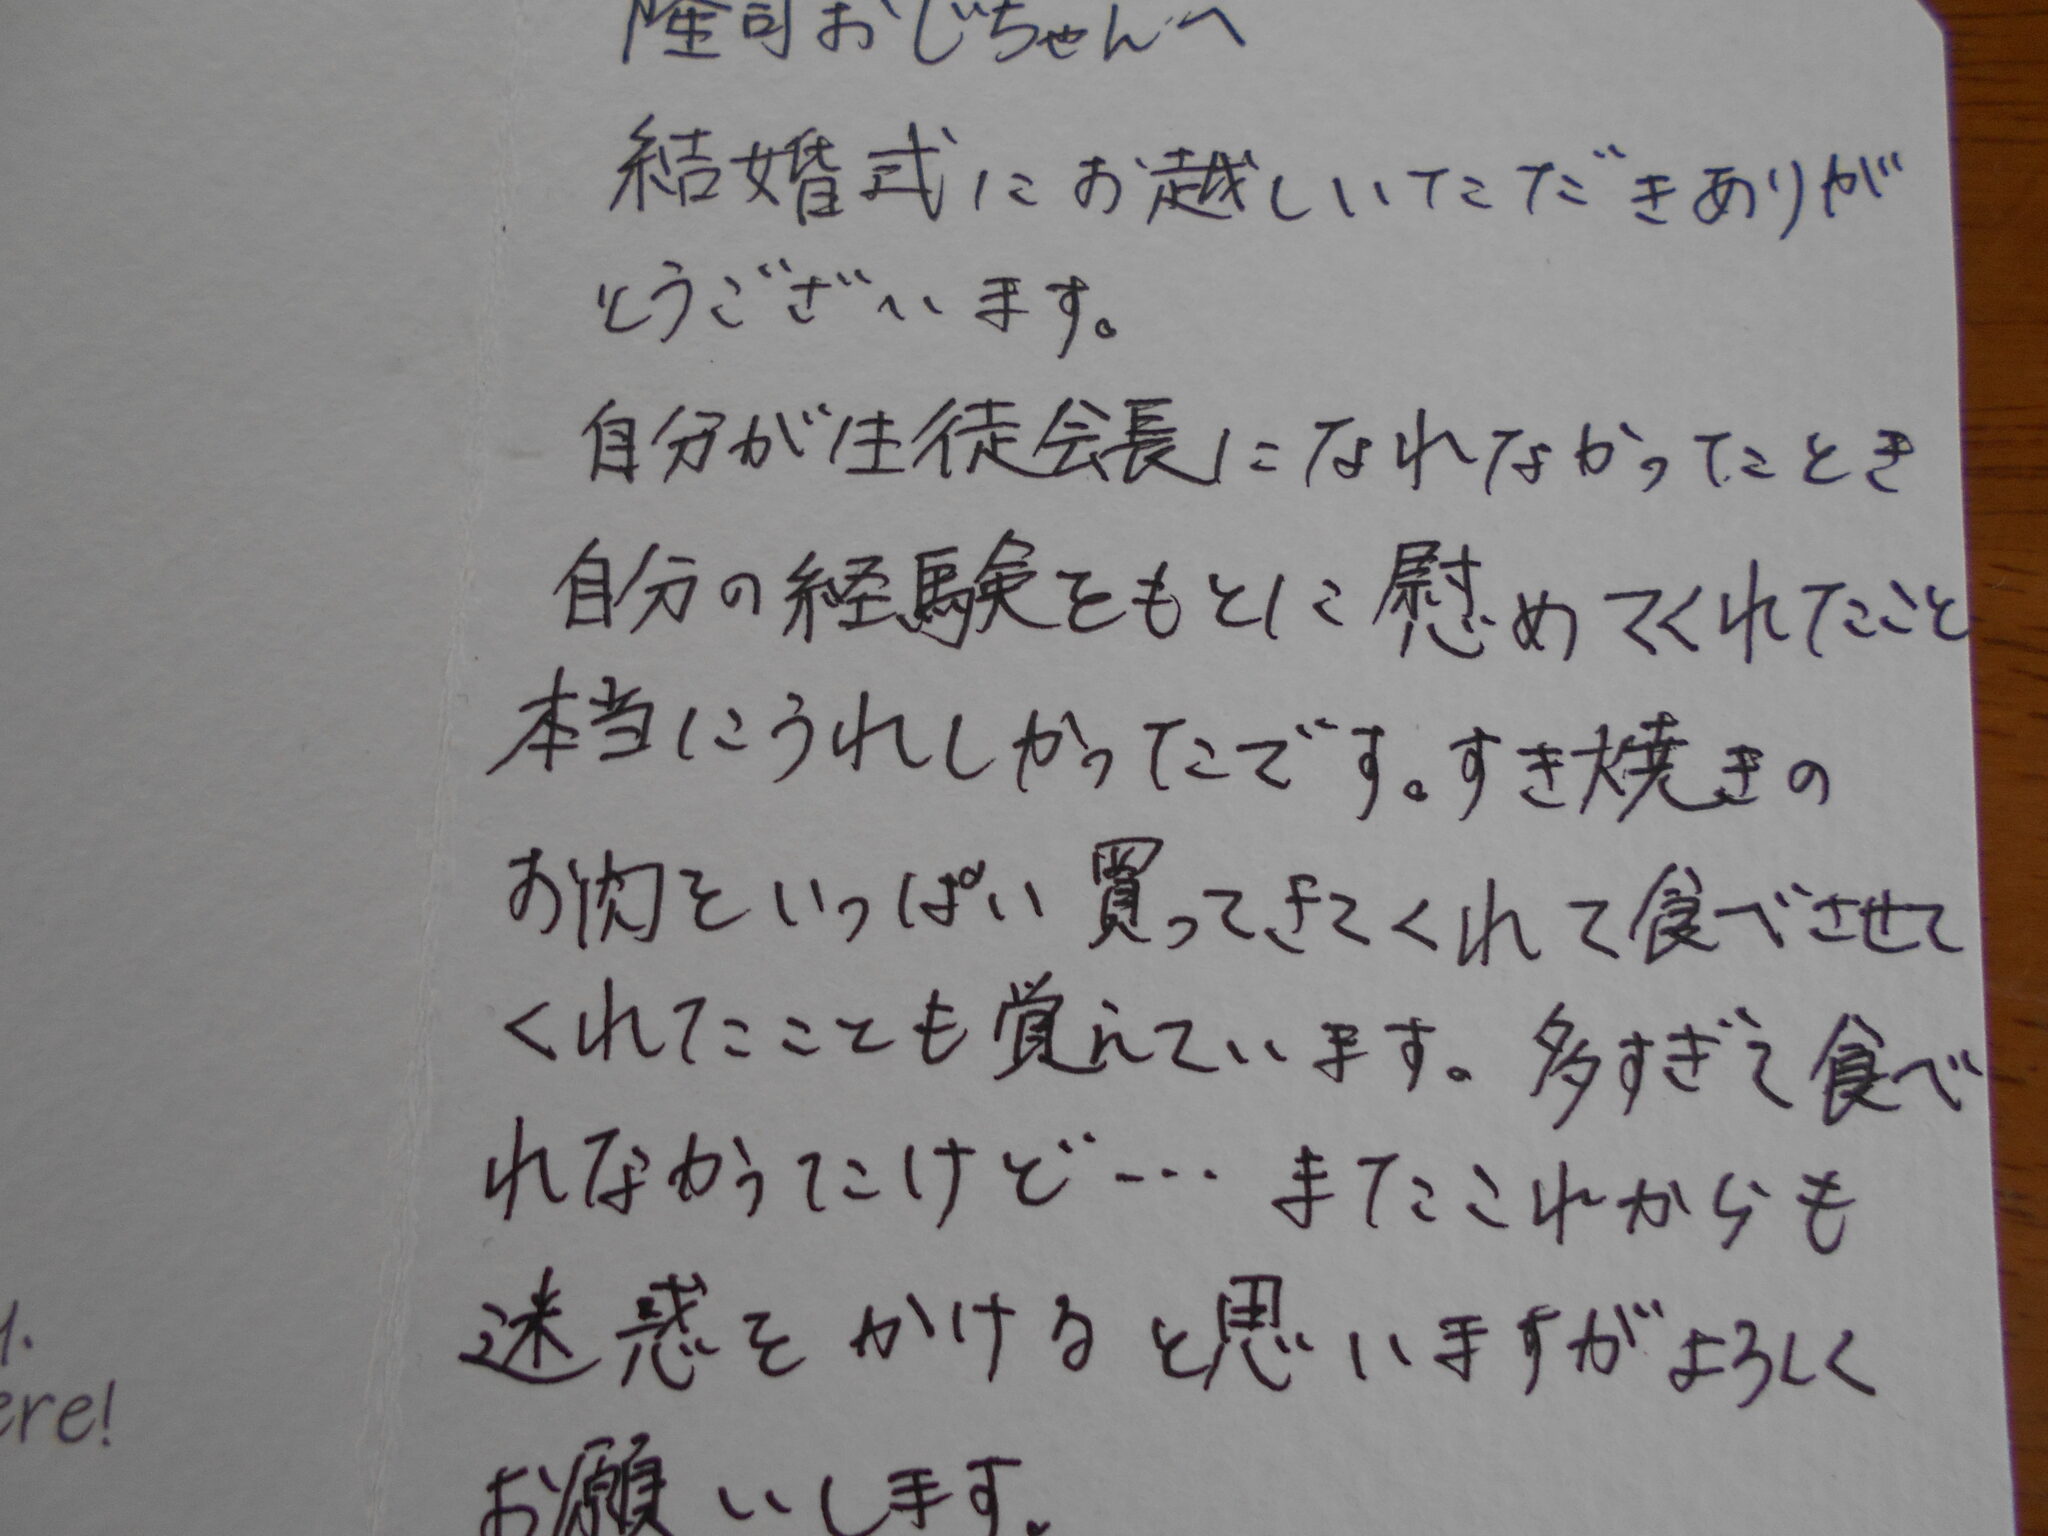 隆司おじちゃんへ
結婚式にお越しいただきありが
とうございます。
自分が生徒会長になれなかったとき
自分の経験をもとに慰めてくれたこと
本当にうれしかったです。すき焼きの
お肉をいっぱい買ってきてくれて食べさせて
くれたことも覚えています。多すぎて食べ
れなかったけど… またこれからも
迷惑をかけると思いますがよろしく
お願いします。
ere!